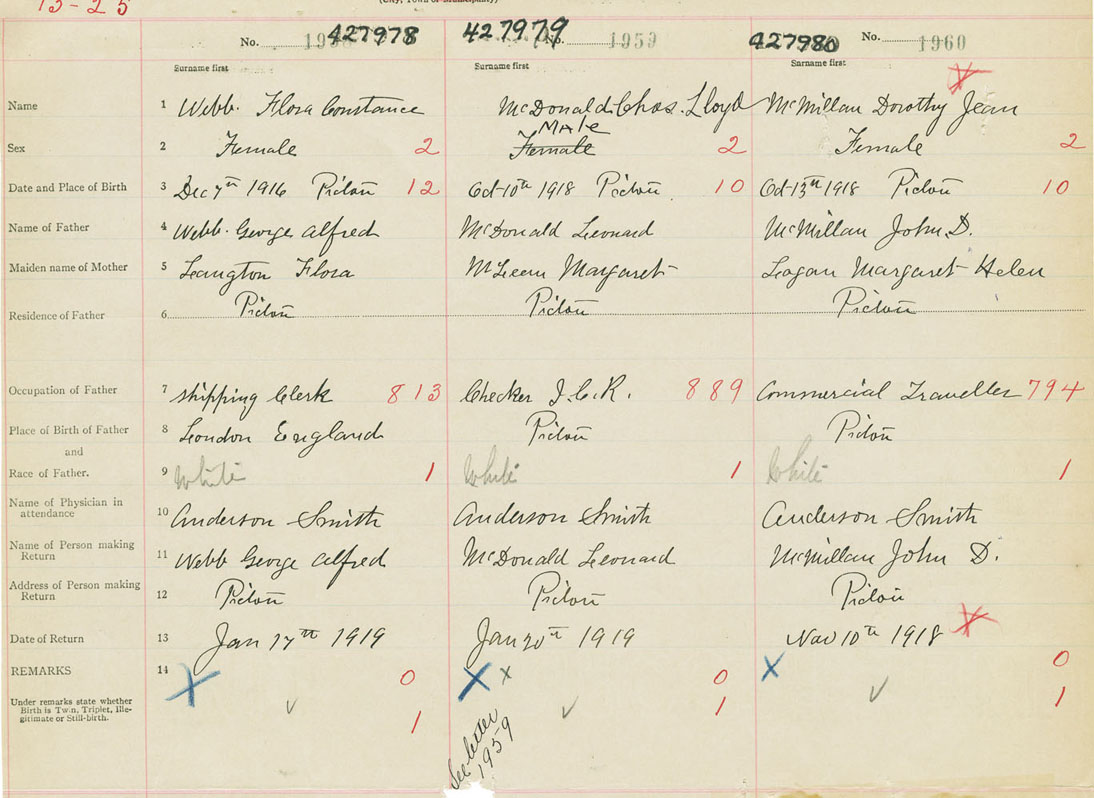 13-25
(City, Town or Municipality)
No. 427978 427979 No. 1959 427980 No. 1960
Surname first Surname first Surname first
Name 1 Webb. Flora Constance McDonald Chas. Lloyd McMillan Dorothy Jean
Male
Sex 2 Female 2 Female 2 Female 2
Date and Place of Birth 3 Dec 7th 1916 Pictou 12 Oct 10th 1918 Pictou 10 Oct 13th 1918 Pictou 10
Name of Father 4 Webb. George Alfred McDonald Leonard McMillan John. D.
Maiden name of Mother 5 Langton Flora McLean Margaret Logan Margaret Helen
Residence of Father 6 Pictou Pictou Pictou
Occupation of Father 7 Shipping Clerk 813 Checker I.C.R. 889 Commercial Traveller 794
Place of Birth of Father 8 London England Pictou Pictou
and
Race of Father. 9 White 1 White 1 White 1
Name of Physician in
attendance 10 Anderson Smith Anderson Smith Anderson Smith
Name of Person making
Return 11 Webb George Alfred McDonald Leonard McMillan John D.
Address of Person making
Return 12 Pictou Pictou Pictou
Date of Return 13 Jan 17th 1919 Jan 20th 1919 Nov 10th 1918
REMARKS 14 0 0 0
Under remarks state whether
Birth is Twin, Triplet, Ille-
gitimate or Still-birth.
1 1 1
See letter
1959